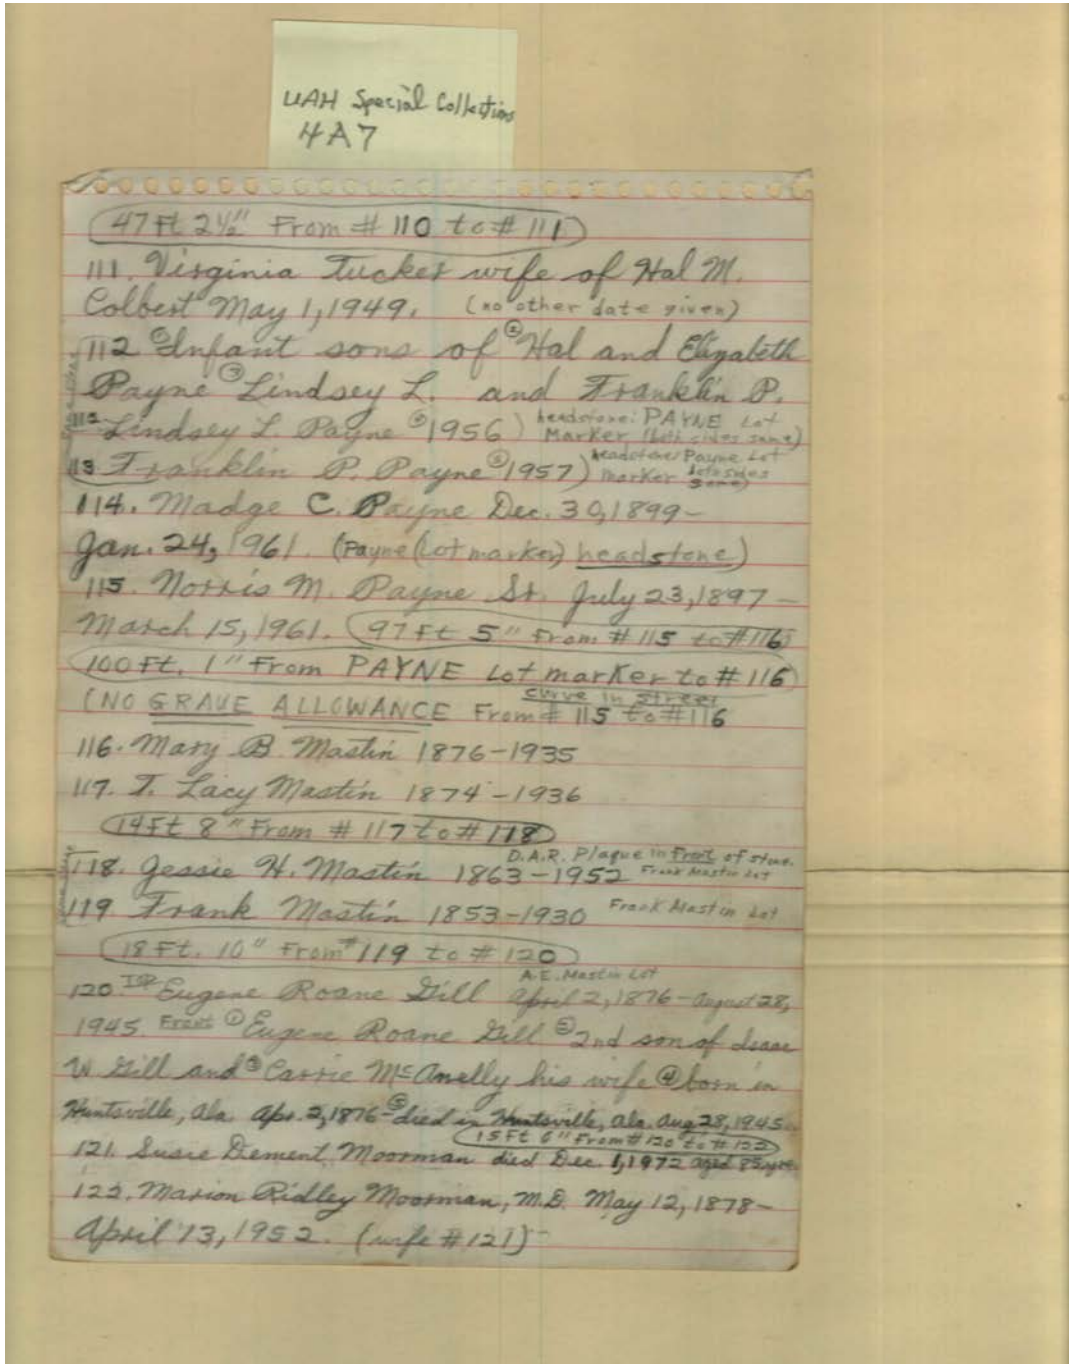 UAH Special Collections
4A7
47 Ft 2½" From # 110 to # 111
111. Virginia Tucker wife of Hal M.
Colbert May 1, 1949. (no other date given)
112 ① Infant sons of ② Hal and Elizabeth
Payne ③ Lindsey L. and Franklin P.
112 Lindsey L. Payne ④ 1956) headstone: PAYNE Lot
Marker (both sides same)
113. Franklin P. Payne ⑤ 1957) headstone: Payne Lot
marker both sides
same)
114. Madge C. Payne Dec. 30, 1899-
Jan. 24, 1961. (Payne (Lot marker) headstone)
115. Norris M. Payne Sr. July 23, 1897-
March 15, 1961. (97 Ft 5" From # 115 to # 116)
100 Ft. 1" From PAYNE Lot marker to # 116
curve in street
(NO GRAVE ALLOWANCE From # 115 to # 116
116. Mary B. Mastin 1876-1935
117. T. Lacy Mastin 1874-1936
14 Ft 8" From # 117 to # 118
D.A.R. Plaque in Front of stone.
118. Jessie H. Mastin 1863-1952 Frank Mastin Lot
119 Frank Mastin 1853-1930 Frank Mastin Lot
18 Ft. 10" From # 119 to # 120
A.E. Mastin Lot
120. Top Eugene Roane Gill April 2, 1876-August 28,
1945. Front ① Eugene Roane Gill ② 2nd son of Isaac
W. Gill and ③ Carrie McAnelly his wife ④ born in
Huntsville, Ala. Apr. 2, 1876-⑤ died in Huntsville, Ala. Aug 28, 1945.
15 Ft 6" From # 120 to # 122
121. Susie Dement Moorman died Dec. 1, 1972 aged 85 yrs.
122. Marion Ridley Moorman, M.D. May 12, 1878-
April 13, 1952. (wife # 121)